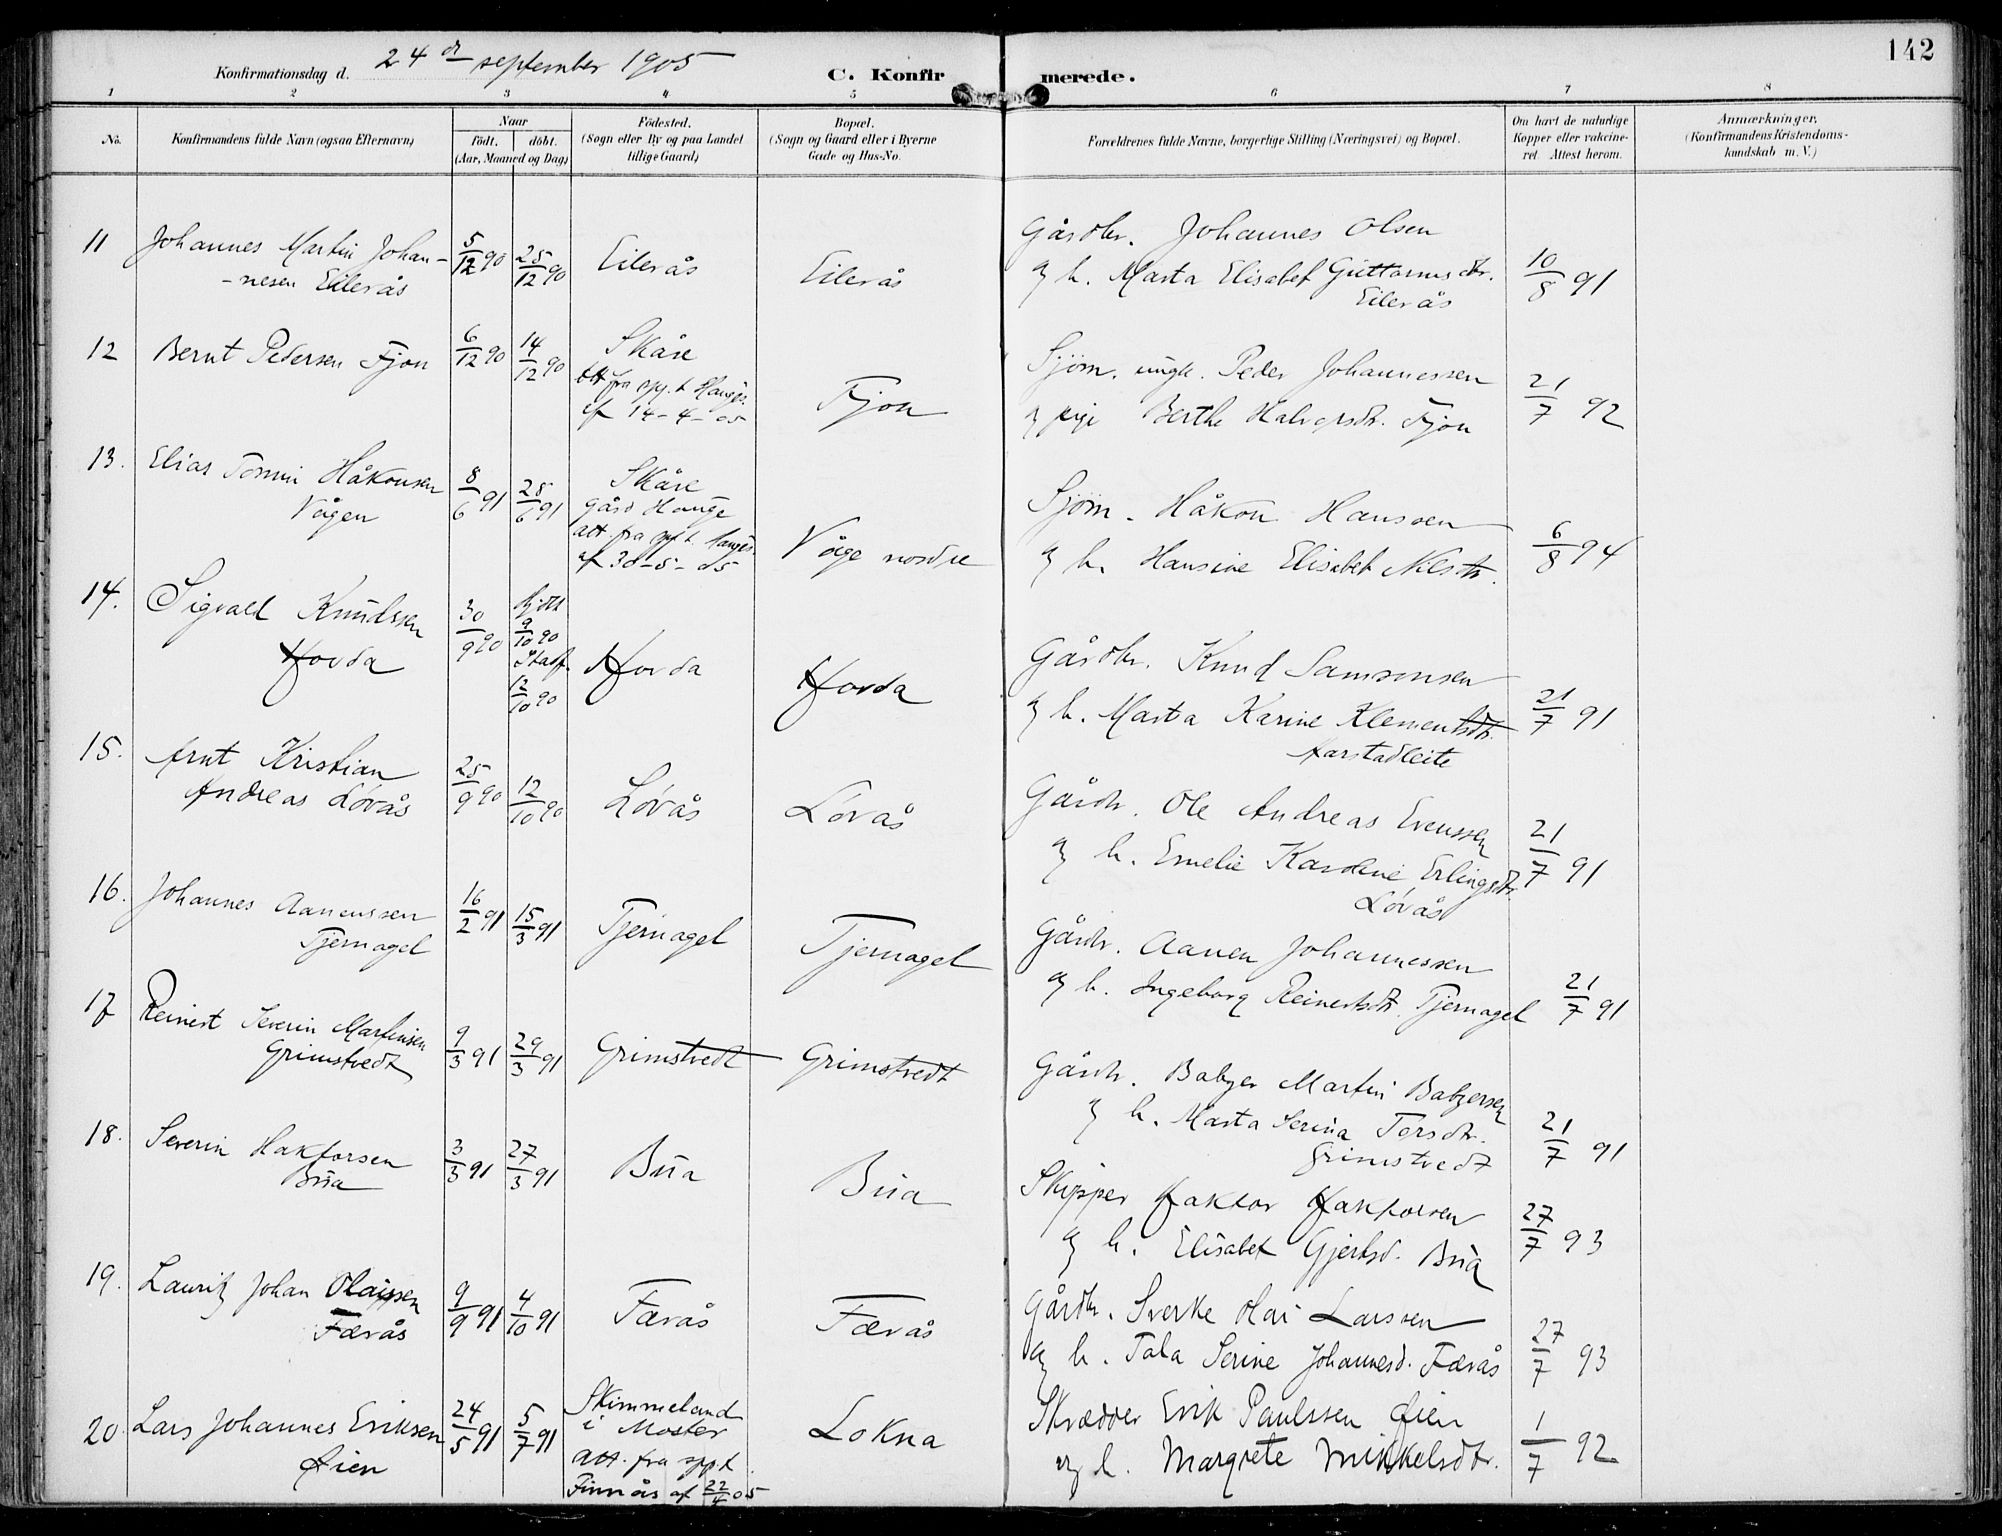 142
Konfirmationsdag d. 24de september 1905
C. Konfirmerede.
1 2 3 4 5 6 7 8
No.
Konfirmandens fulde Navn (ogsaa Efternavn)
Naar
Födt. döbt.
(Aar, Maaned og Dag)
Födested.
(Sogn eller By og paa Landet
tillige Gaard)
Bopæl.
(Sogn og Gaard eller i Byerne
Gade og Hus-No.
Forældrenes fulde Navne, borgerlige Stilling (Næringsvei) og Bopæl.
Om havt de naturlige
Kopper eller vakcine-
ret. Attest herom.
Anmærkninger.
(Konfirmandens Kristendoms-
kundskab m. V.)
11 Johannes Martin Johan-
-nesen Eilerås
5/12 90 25/12 90
Eilerås
Eilerås
Gårdbr. Johannes Olsen
og h. Marta Elisabet Guttormsdtr.
Eilerås
10/8 91
12 Bernt Pedersen Fjon
6/12 90 14/12 90
Skåre
att. fra spr. t. Hauges.
af 14-4-05
Fjon
Sjøm. ungk. Peder Johannessen
og pige Berthe Halvorsdtr. Fjon
21/7 92
13. Elias Tomin Håkonsen
Vågen
8/6 91 28/6 91
Skåre
gård Hauge
att. fra spr. t. Hauges.
af 30-5-05
Våge nordre
Sjøm. Håkon Hansen
og h. Hansine Elisabet Nilsdtr.
6/8 94
14. Sigvald Knudssen
Hovda
30/9 90
hjdbt
9/10 90
Stadf.
12/10 90
Hovda
Hovda
Gårdbr. Knud Samsonsen
og h. Marta Karine Klementsdtr.
Aarstadleite
21/7 91
15. Arnt Kristian
Andreas Løvås
25/9 90 12/10 90
Løvås
Løvås
Gårdbr. Ole Andreas Evenssen
og h. Emelie Karoline Erlingsdtr.
Løvås
21/7 91
16. Johannes Aanenssen
Tjernagel
16/2 91 15/3 91
Tjernagel
Tjernagel
Gårdbr. Aanen Johannessen
og h. Ingeborg Reinertsdtr. Tjernagel
21/7 91
17 Reinert Severin Martinsen
Grimstvedt
9/3 91 29/3 91
Grimstvedt
Grimstvedt
Gårdbr. Babser Martin Babsersen
og h. Marta Serina Torsdtr.
Grimstvedt
21/7 91
18. Severin Haktorsen
Bua
3/3 91 27/3 91
Bua
Bua
Skipper Haktor Haktorsen
og h. Elisabet Gjertsd. Bua
27/7 93
19. Lauritz Johan Olaissen
Færås
9/9 91 4/10 91
Færås
Færås
Gårdbr. Sverke Olai Larssen
og h. Tala Serine Johannesd. Færås
27/7 93
20. Lars Johannes Eriksen
Øien
24/5 91 5/7 91
Skimmeland
i Moster
att. fra sppt.
Finnås af 22/4 05
Lokna
Skrædder Erik Paulssen Øien
og h. Margrete Minkelsdtr.
1/7 92